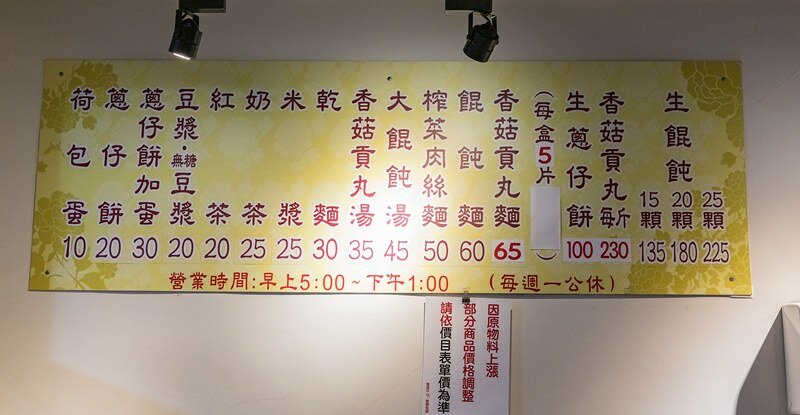 生餛飩
25顆 225
20顆 180
15顆 135
香菇貢丸每斤 230
生蔥仔餅 100
(每盒5片)
香菇貢丸麵 65
餛飩麵 60
榨菜肉絲麵 50
大餛飩湯 45
香菇貢丸湯 35
乾麵 30
米漿 25
奶茶 25
紅茶 20
豆漿·無糖豆漿 20
蔥仔餅加蛋 30
蔥仔餅 20
荷包蛋 10
營業時間:早上5:00~下午1:00 (每週一公休)
因原物料上漲
部分商品價格調整
請依價目表單價為準